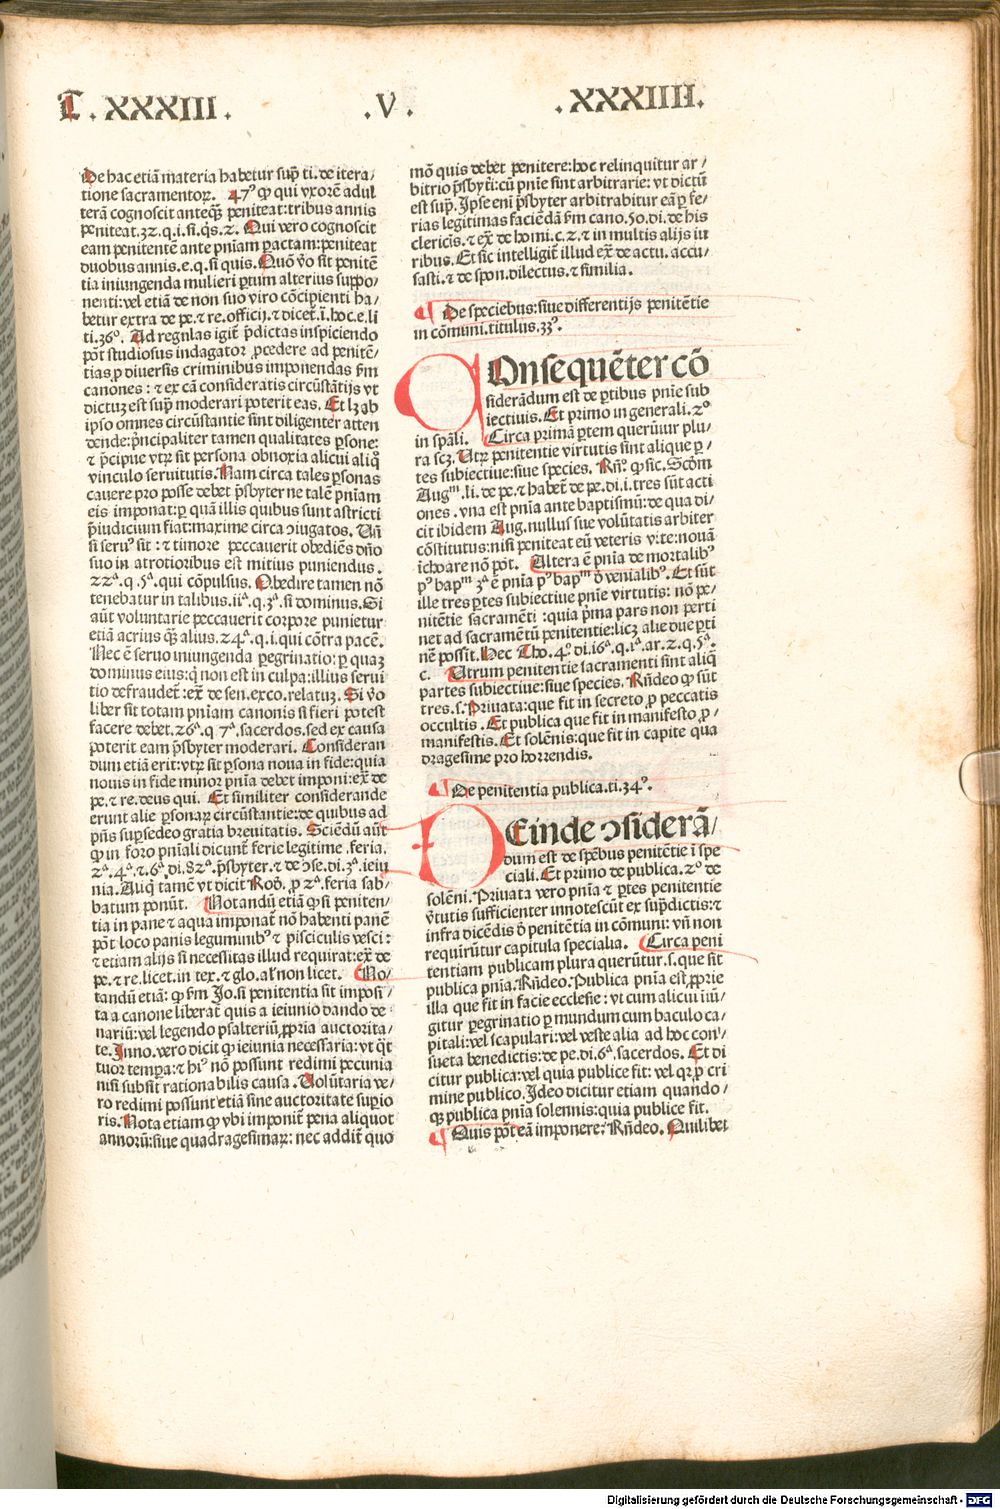 T. XXXIII. .V. .XXXIIII.
De hac etiã materia habetur sup̃ ti. de itera/
tione sacramentoꝝ. 47ꝰ ꝙ qui vxorẽ adul
terã cognoscit anteqꝫ peniteat: tribus annis
peniteat. 32. q. i. si. q̃s. 2. Qui vero cognoscit
eam penitentẽ ante pniam ꝑactam: peniteat
duobus annis. e. q. si quis. Quõ ṽo sit penitẽ
tia iniungenda mulieri ꝑtum alterius suppo-
nenti: vel etiã de non suo viro cõcipienti ha/
betur extra de pe. ⁊ re. officij. ⁊ dicet̃. ĩ. hoc. e. li
ti. 36º. Ad regulas igit̃ p̃dictas inspiciendo
põt studiosus indagator ꝓcedere ad penitẽ/
tias ꝓ diuersis criminibus imponendas ẜm
canones: ⁊ ex cã consideratis circũstãtijs vt
dictuꝫ est sup̃ moderari poterit eas. Et lꝫ ab
ipso omnes circũstantie sint diligenter atten
dende: p̃ncipaliter tamen qualitates ꝑsone:
⁊ p̃cipue vtꝝ sit persona obnoxia alicui aliq̃
vinculo seruitutis. Nam circa tales ꝑsonas
cauere pro posse debet p̃sbyter ne talẽ pniam
eis imponat: ꝑ quã illis quibus sunt astricti
p̃iudicium fiat: maxime circa ꝯiugatos. Vñ
si seruꝰ sit: ⁊ timore peccauerit obediẽs dño
suo in atrotioribus est mitius puniendus.
22ª. q. 5ª. qui cõpulsus. Obedire tamen nõ
tenebatur in talibus. iiª. q. 3ª. si dominus. Si
aũt voluntarie peccauerit corpore punietur
etiã acrius qꝫ alius. 24ª. q. i. qui cõtra pacẽ.
Nec ẽ seruo iniungenda ꝑegrinatio: ꝑ quaꝫ
dominus eius: q̃ non est in culpa: illius serui
tio defraudet̃: ex̃ de sen. exco. relatuꝫ. Si ṽo
liber sit totam pniam canonis si fieri potest
facere debet. 26ª. q 7ª. sacerdos. sed ex causa
poterit eam p̃sbyter moderari. Consideran
dum etiã erit: vtꝝ sit ꝑsona noua in fide: quia
nouis in fide minor pnia debet imponi: ex̃ de
pe. ⁊ re. deus qui. Et similiter considerande
erunt alie ꝑsonaꝝ circũstantie: de quibus ad
p̃ñs supersedeo gratia breuitatis. Sciẽdũ aũt
ꝙ in foro pñiali dicunt̃ ferie legitime. feria.
2ª. 4ª. ⁊. 6ª. di. 82ª. p̃sbyter. ⁊ de ꝯse. di. 3ª. ieiu
nia. Aliq̃ tamẽ vt dicit Rob̃. ꝓ 2ª. feria sab/
batum ponũt. Notandũ etiã ꝙ si peniten/
tia in pane ⁊ aqua imponat̃ nõ habenti panẽ
põt loco panis leguminibꝰ ⁊ pisciculis vesci:
⁊ etiam alijs si necessitas illud requirat: ex̃ de
pe. ⁊ re. licet. in tex. ⁊ glo. al̃r non licet. No-
tandũ etiã: ꝙ ẜm Jo. si penitentia sit imposi/
ta a canone liberat̃ quis a ieiunio dando de
nariũ: vel legendo psalteriũ ꝓpria auctorita/
te. Inno. vero dicit ꝙ ieiunia necessaria: vt q̃t
tuor tempꝝa: ⁊ hiꝰ nõ possunt redimi pecunia
nisi subsit rationabilis causa. Volũtaria ve/
ro redimi possunt etiã sine auctoritate superio
ris. Nota etiam ꝙ vbi imponit̃ pena aliquot
annorũ: siue quadragesimaꝝ: nec addit̃ quo
mõ quis debet penitere: hoc relinquitur ar/
bitrio p̃sbyt̃i: cũ pnie sint arbitrarie: vt dictũ
est sup̃. Ipse eni p̃sbyter arbitrabitur eã ꝑ fe/
rias legitimas faciẽdã ẜm cano. 50. di. de his
clericis. ⁊ ex̃ de homi. c. 2. ⁊ in multis alijs iu
ribus. Et sic intelligit̃ illud ex̃ de actu. accu/
sasti. ⁊ de spon. dilectus. ⁊ similia.
¶ De speciebus: siue differentijs penitẽtie
in cõmuni. titulus. 33ꝰ.
COnsequẽter cõ
siderãdum est de ꝑtibus pnie sub
iectiuis. Et primo in generali. 2º
in sp̃ali. Circa primã ꝑtem querũtur plu/
ra scꝫ. Vtꝝ penitentie virtutis sint alique ꝑ/
tes subiectiue: siue species. Rñ. ꝙ sic. Scðm
Augᵐ. li. de pe. ⁊ habet̃ de pe. di. i. tres sũt acti
ones. vna est pnia ante baptismũ: de qua di/
cit ibidem Aug. nullus sue volũtatis arbiter
cõstitutus: nisi peniteat eũ veteris vite: nouã
ĩchoare nõ põt. Altera ẽ pnia de mortalibꝰ
pꝰ bapᵐ 3ª ẽ pnia pꝰ bapᵐ õ venialibꝰ. Et sũt
ille tres ꝑtes subiectiue pnie virtutis: nõ pe/
nitẽtie sacramẽti: quia p̃ma pars non perti
net ad sacramẽtũ penitentie: licꝫ alie due ꝑti
nẽ possit. Hec Tho. 4º. di. 16ª. q. 1ª. ar. 2. q. 5ª.
c. Vtrum penitentie sacramenti sint aliq̃
partes subiectiue: siue species. Rñdeo ꝙ sũt
tres. s. Priuata: que fit in secreto ꝓ peccatis
occultis. Et publica que fit in manifesto ꝓ/
manifestis. Et solẽnis: que fit in capite qua
dragesime pro horrendis.
¶ De penitentia publica. ti. 34º.
DEinde ꝯsiderã/
dum est de spẽbus penitẽtie ĩ spe
ciali. Et primo de publica. 2º de
solẽni. Priuata vero pnia ⁊ ꝑtes penitentie
ṽtutis sufficienter innotescũt ex sup̃dictis: ⁊
infra dicẽdis õ penitẽtia in cõmuni: vñ non
requirũtur capitula specialia. Circa peni
tentiam publicam plura querũtur. s. que sit
publica pnia. Rñdeo. Publica pnia est ꝓprie
illa que fit in facie ecclesie: vt cum alicui iniũ/
gitur ꝑegrinatio ꝑ mundum cum baculo ca/
pitali: vel scapulari: vel veste alia ad hoc conˢ/
sueta benedictis: de pe. di. 6ª. sacerdos. Et di
citur publica: vel quia publice fit: vel qꝛ ꝓ cri
mine publico. Ideo dicitur etiam quando/
qꝫ publica pnia solennis: quia publice fit.
¶ Quis põt eã imponere? Rñdeo. Quilibet
Digitalisierung gefördert durch die Deutsche Forschungsgemeinschaft - DFG